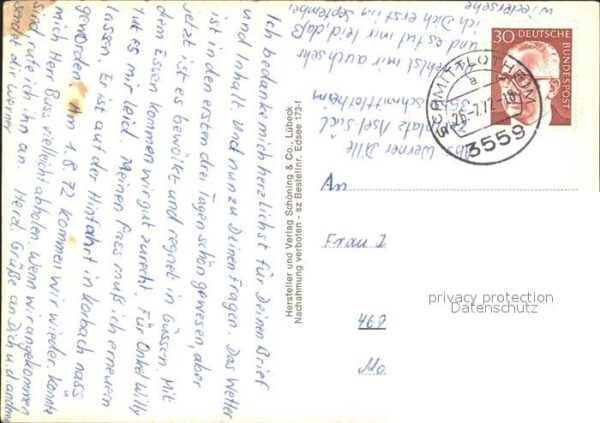 Ich bedanke mich herzlichst für Deinen Brief
und Inhalt. Und nun zu Deinen Fragen. Das Wetter
ist in den ersten drei Tagen schön gewesen, aber
jetzt ist es bewölkt und regnet in Güssen. Mit
dem Essen kommen wir gut zurecht. Für Onkel Willy
tut es mir leid. Meinen Pass muß ich erneuern
lassen. Er ist auf der Hinfahrt in Korbach nass
geworden. Am 1.8.72 kommen wir wieder. Könnte
mich Herr Buss vielleicht abholen. Wenn wir angekommen
sind rufe ich ihn an. Herzl. Grüße an Dich u. d. andren
sendet dir Werner
Hersteller und Verlag Schöning & Co., Lübeck
Nachahmung verboten - sz Bestellnr. Edsee 173-f
Abs. Werner Dille
platz Asel Süd
3559 schmittlotheim
fehlst mir auch sehr
und es tut mir leid, daß
ich Dich erst im Septembe
wiedersehe
30 DEUTSCHE
BUNDESPOST
SCHMITTLOTHEIM
a
26.-7.72-18
3559
An
Frau I.
463
Mo.
privacy protection
Datenschutz